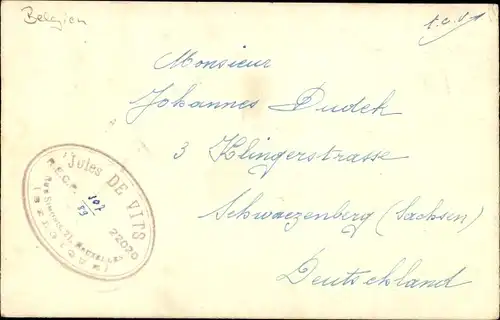 Belgien
t.c.v.
Monsieur
Johannes Dudek
3 Klingerstrasse
Schwarzenberg (Sachsen)
Deutschland
Jules DE VITS
R.E.C.P. 22020
107
Rue Simonis, 71, Bruxelles
(BELGIQUE)